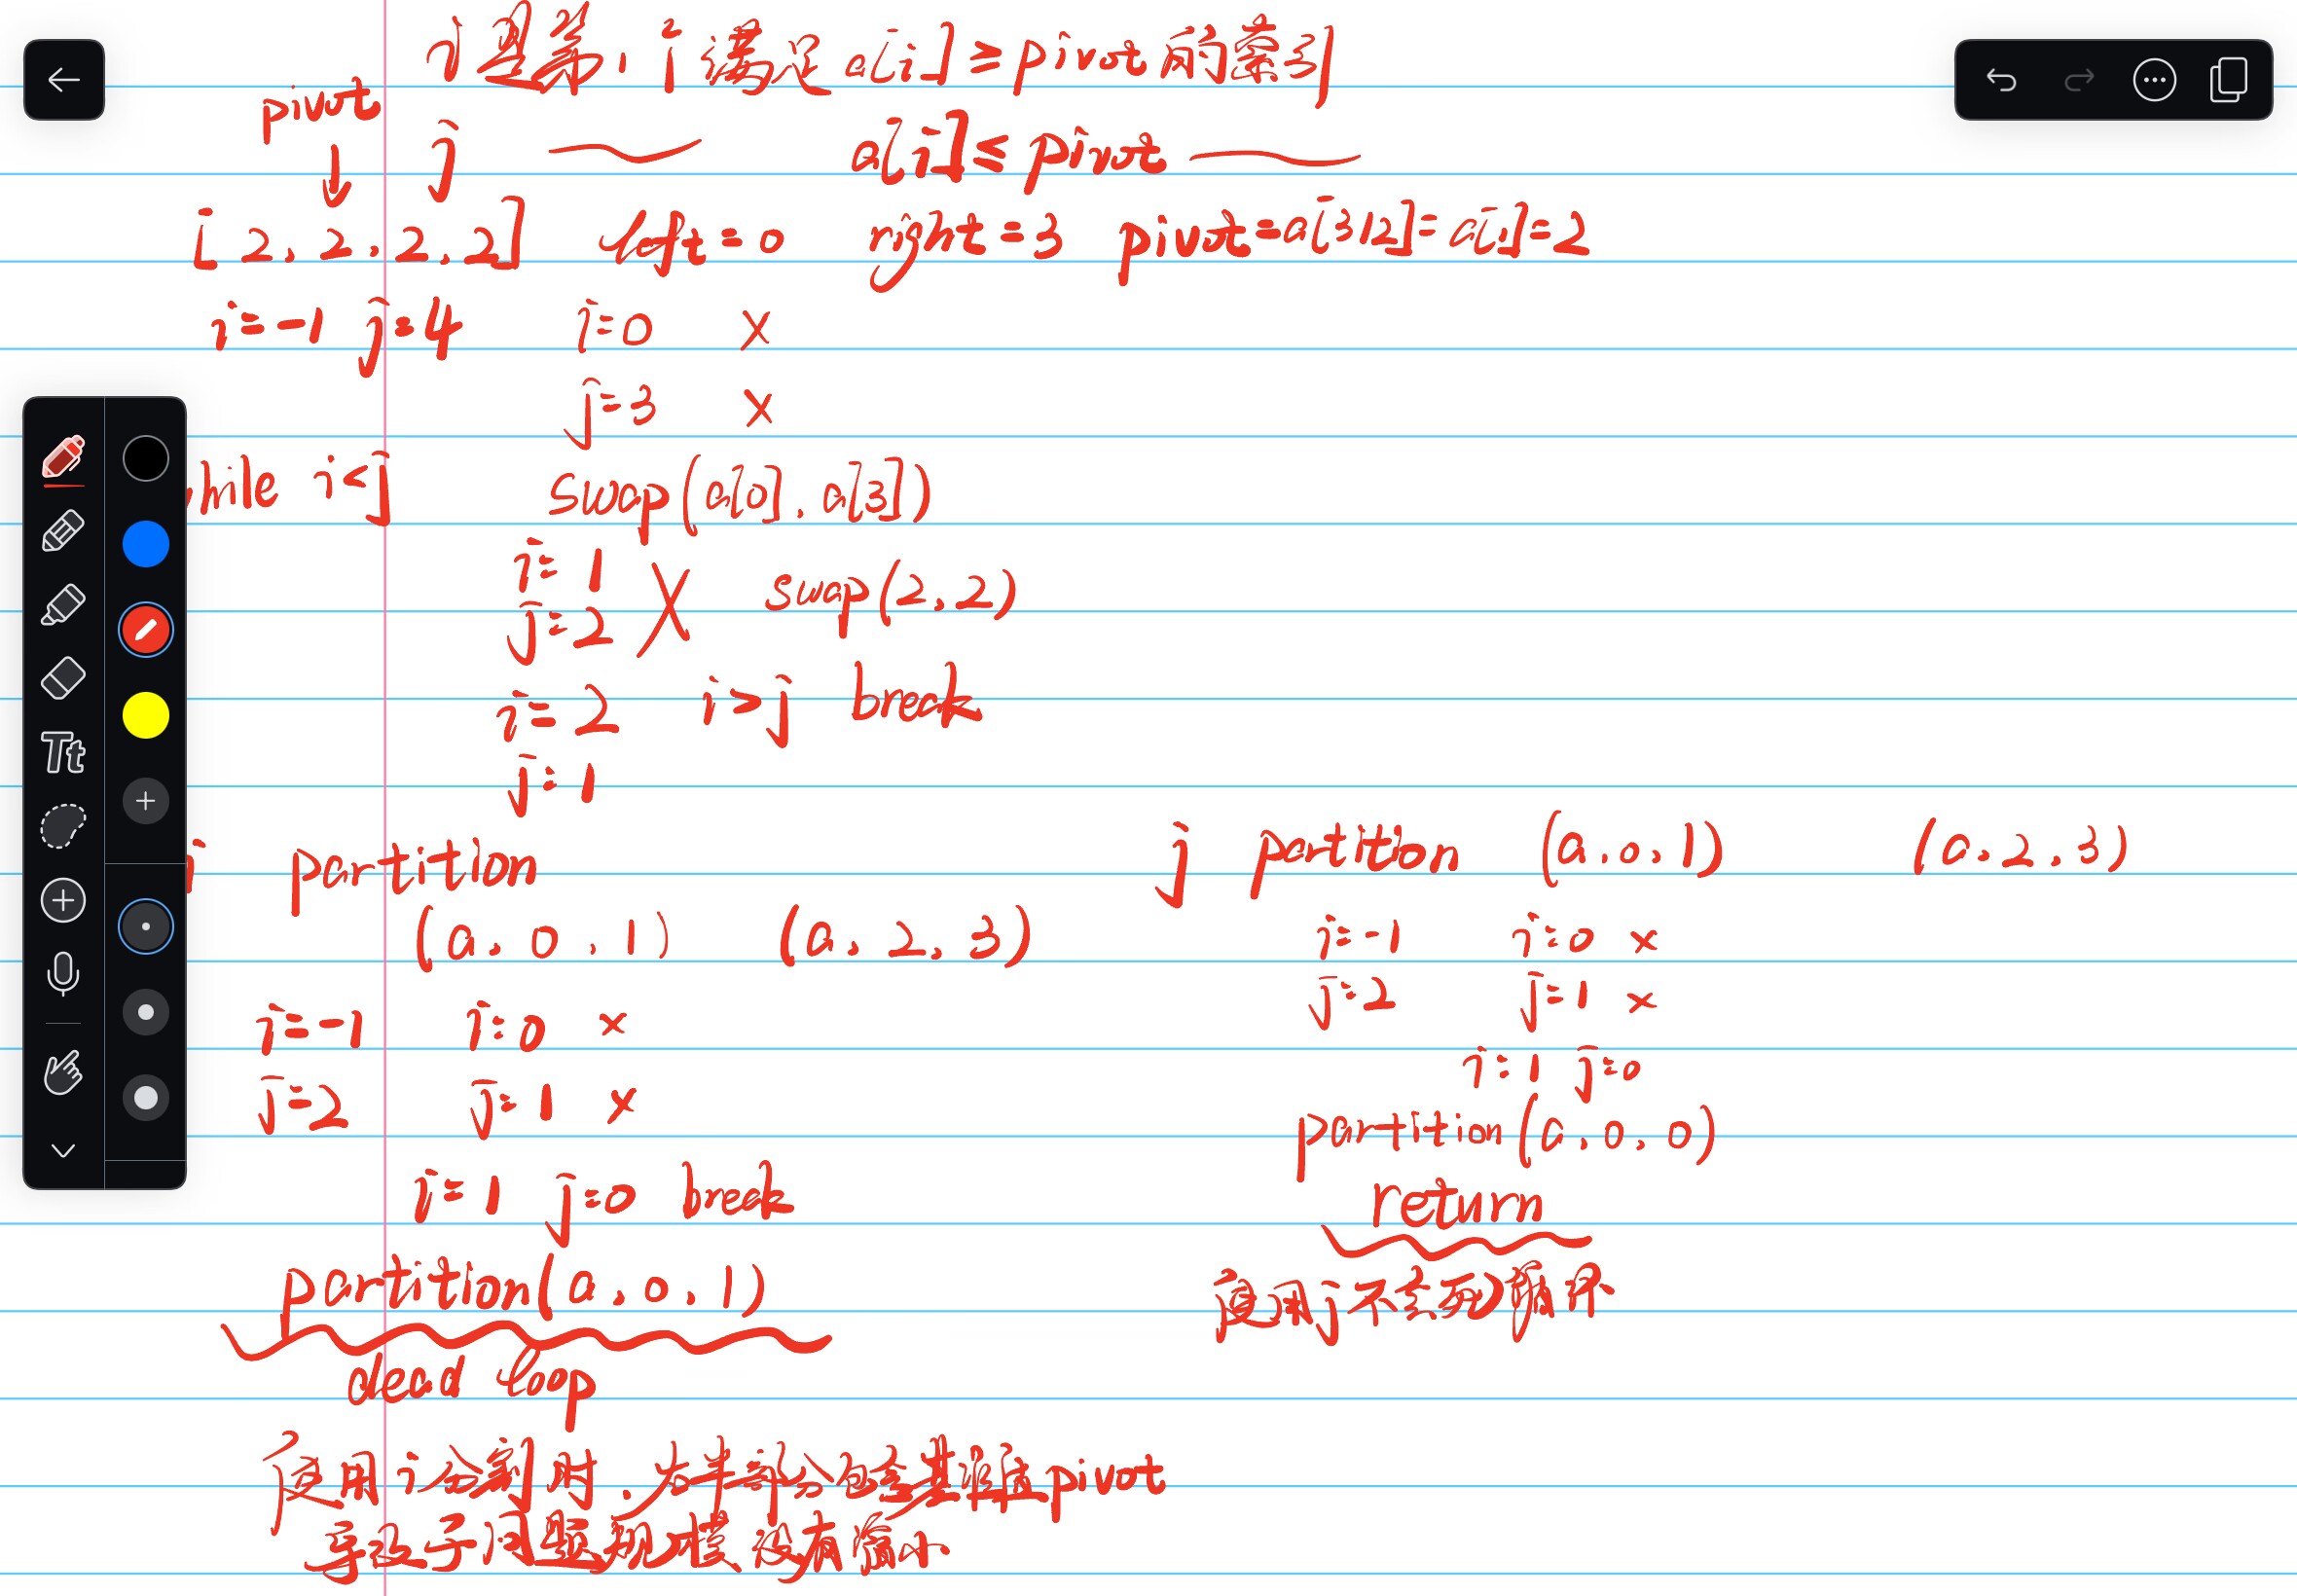 i是第1个满足 a[i]≥pivot 的索引
pivot
j a[i]≤pivot
[2,2,2,2] left=0 right=3 pivot=a[3/2]=a[1]=2
i=-1 j=4 i=0 x
j=3 x
hile i<j swap(a[0],a[3])
i=1
j=2 X swap(2,2)
i=2 i>j break
j=1
partition
(a,0,1) (a,2,3)
i=-1 i=0 x
j=2 j=1 x
i=1 j=0 break
partition(a,0,1)
dead loop
使用i分割时,右半部分包含基准值pivot
导致子问题规模没有缩小
j partition (a,0,1) (a,2,3)
i=-1 i=0 x
j=2 j=1 x
i=1 j=0
partition(a,0,0)
return
使用j不会死循环
Tt